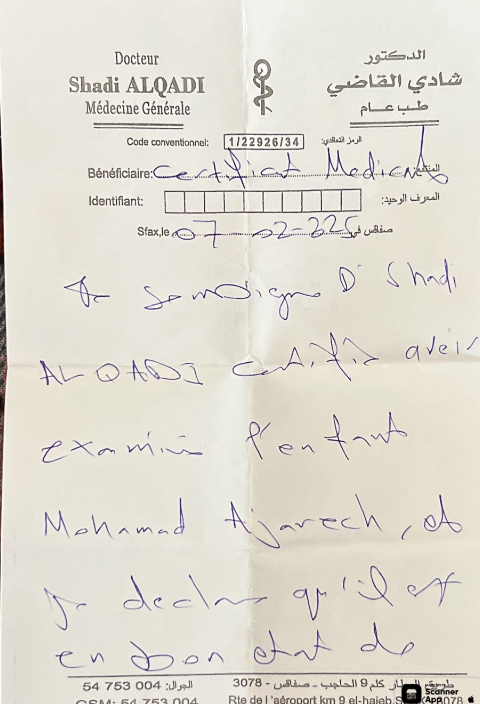 Docteur
Shadi ALQADI
Médecine Générale
الدكتور
شادي القاضي
طب عام
Code conventionnel: 1/22926/34 الرمز التعاقدي:
Bénéficiaire: Certificat Medical المنتفع:
Identifiant: المعرف الوحيد:
Sfax,le 07-02-225 صفاقس في
Je soussigne D Shadi
ALQADI certifie avoir
examiné l'enfant
Mohamad Ajarech, et
je declare qu'il est
en bon etat de
طريق المطار كلم 9 الحاجب - صفاقس - 3078 الجوال: 004 753 54
Rte de l'aéroport km 9 el-haieb.S 3078 GSM: 54 753 004
Scanner
App